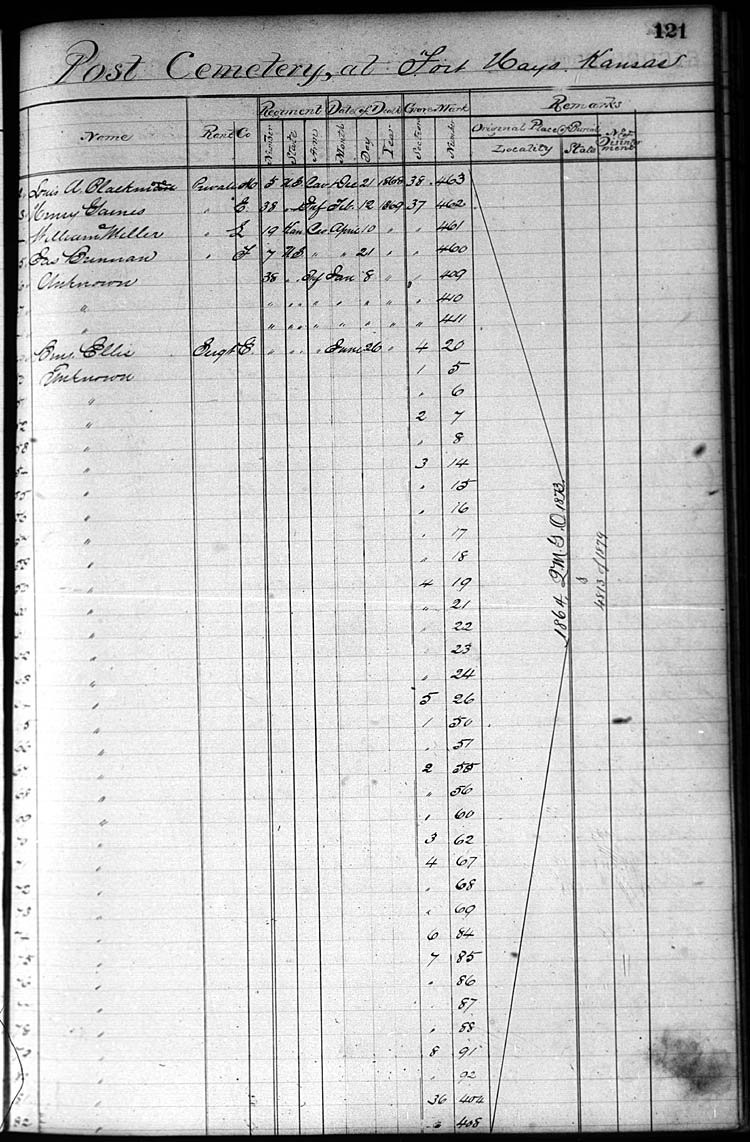 121
Post Cemetery, at Fort Hays Kansas
Regiment Date of Death Grave Mark Remarks
Name Rank Co Number State Arm Month Day Year Section Number Original Place of Burial Locality State
Louis A. Private 5 U.S. Cav Dec 21 1868 38 463
Henry Gaines " E. 38 " Inf Feb. 12 1869 37 462
William Miller " L 19 Kan Cav April 10 " " 461
Brennan " F 7 U.S. " " 21 " " 460
Unknown 38 " Inf Jan 8 " " 409
" " " " " " " " 410
" " " " " " " " 411
Ellis Sergt E. " " " June 26 " 4 20
Unknown 1 5
" " 6
" 2 7
" " 8
" 3 14
" " 15
" " 16
" " 17
" " 18
" 4 19
" " 21
" " 22
" " 23
" " 24
" 5 26
" 1 50
" " 51
" 2 55
" " 56
" " 60
" 3 62
" 4 67
" " 68
" " 69
" 6 84
" 7 85
" " 86
" " 87
" " 88
" 8 91
" " 92
" 36 404
" " 408
1864, Q.M.G.O. 1873.
&
4813 of 1879